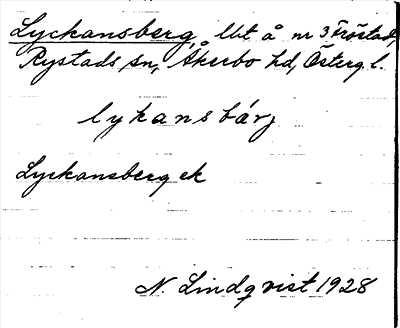 Lyckansberg, lbt å nr 3 Fröstad,
Rystads sn, Åkerbo hd, Österg. l.
lykansbárj
Lyckansberg ek
N. Lindqvist 1928